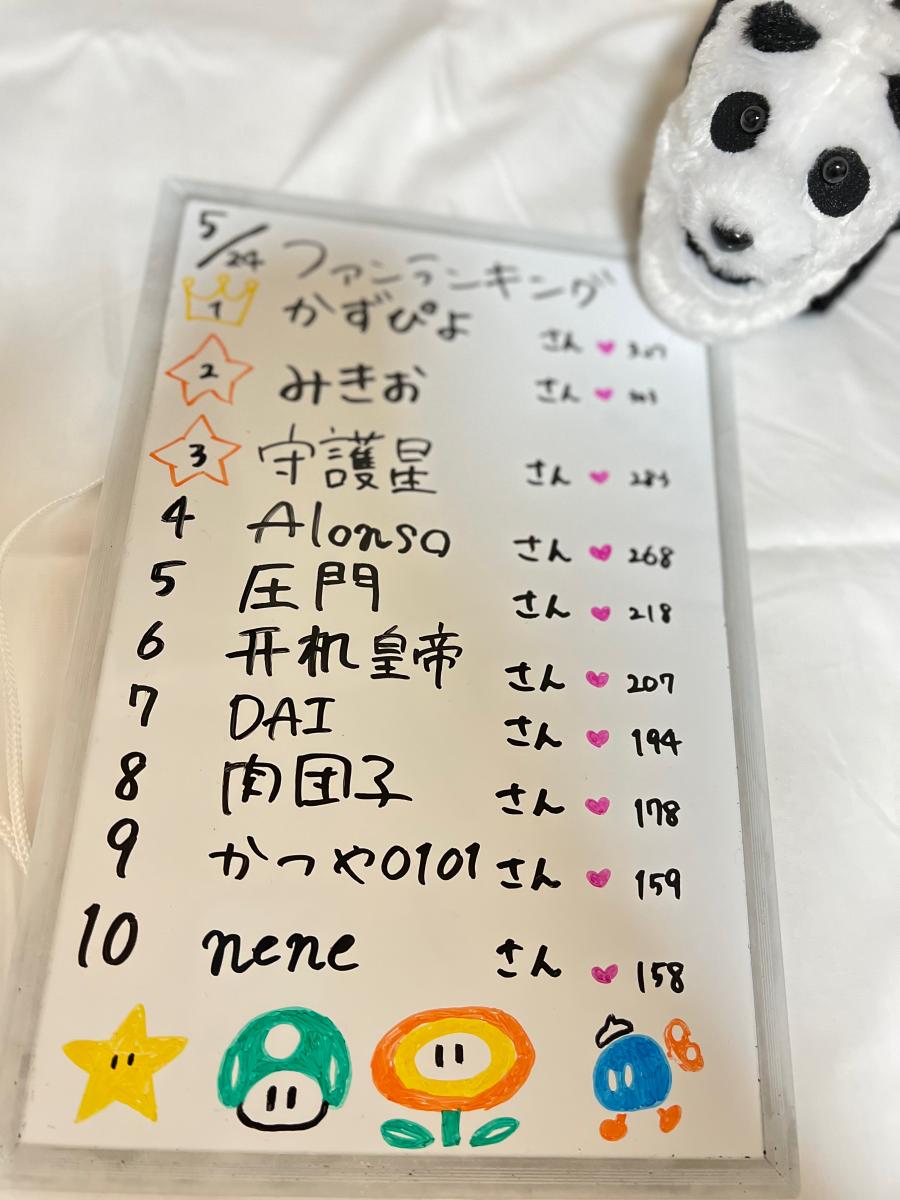 5/24 ファンランキング
1 かずぴよ さん ♥ 307
2 みきお さん ♥
3 守護星 さん ♥
4 Alonso さん ♥ 268
5 圧門 さん ♥ 218
6 开机皇帝 さん ♥ 207
7 DAI さん ♥ 194
8 肉団子 さん ♥ 178
9 かつや0101 さん ♥ 159
10 nene さん ♥ 158